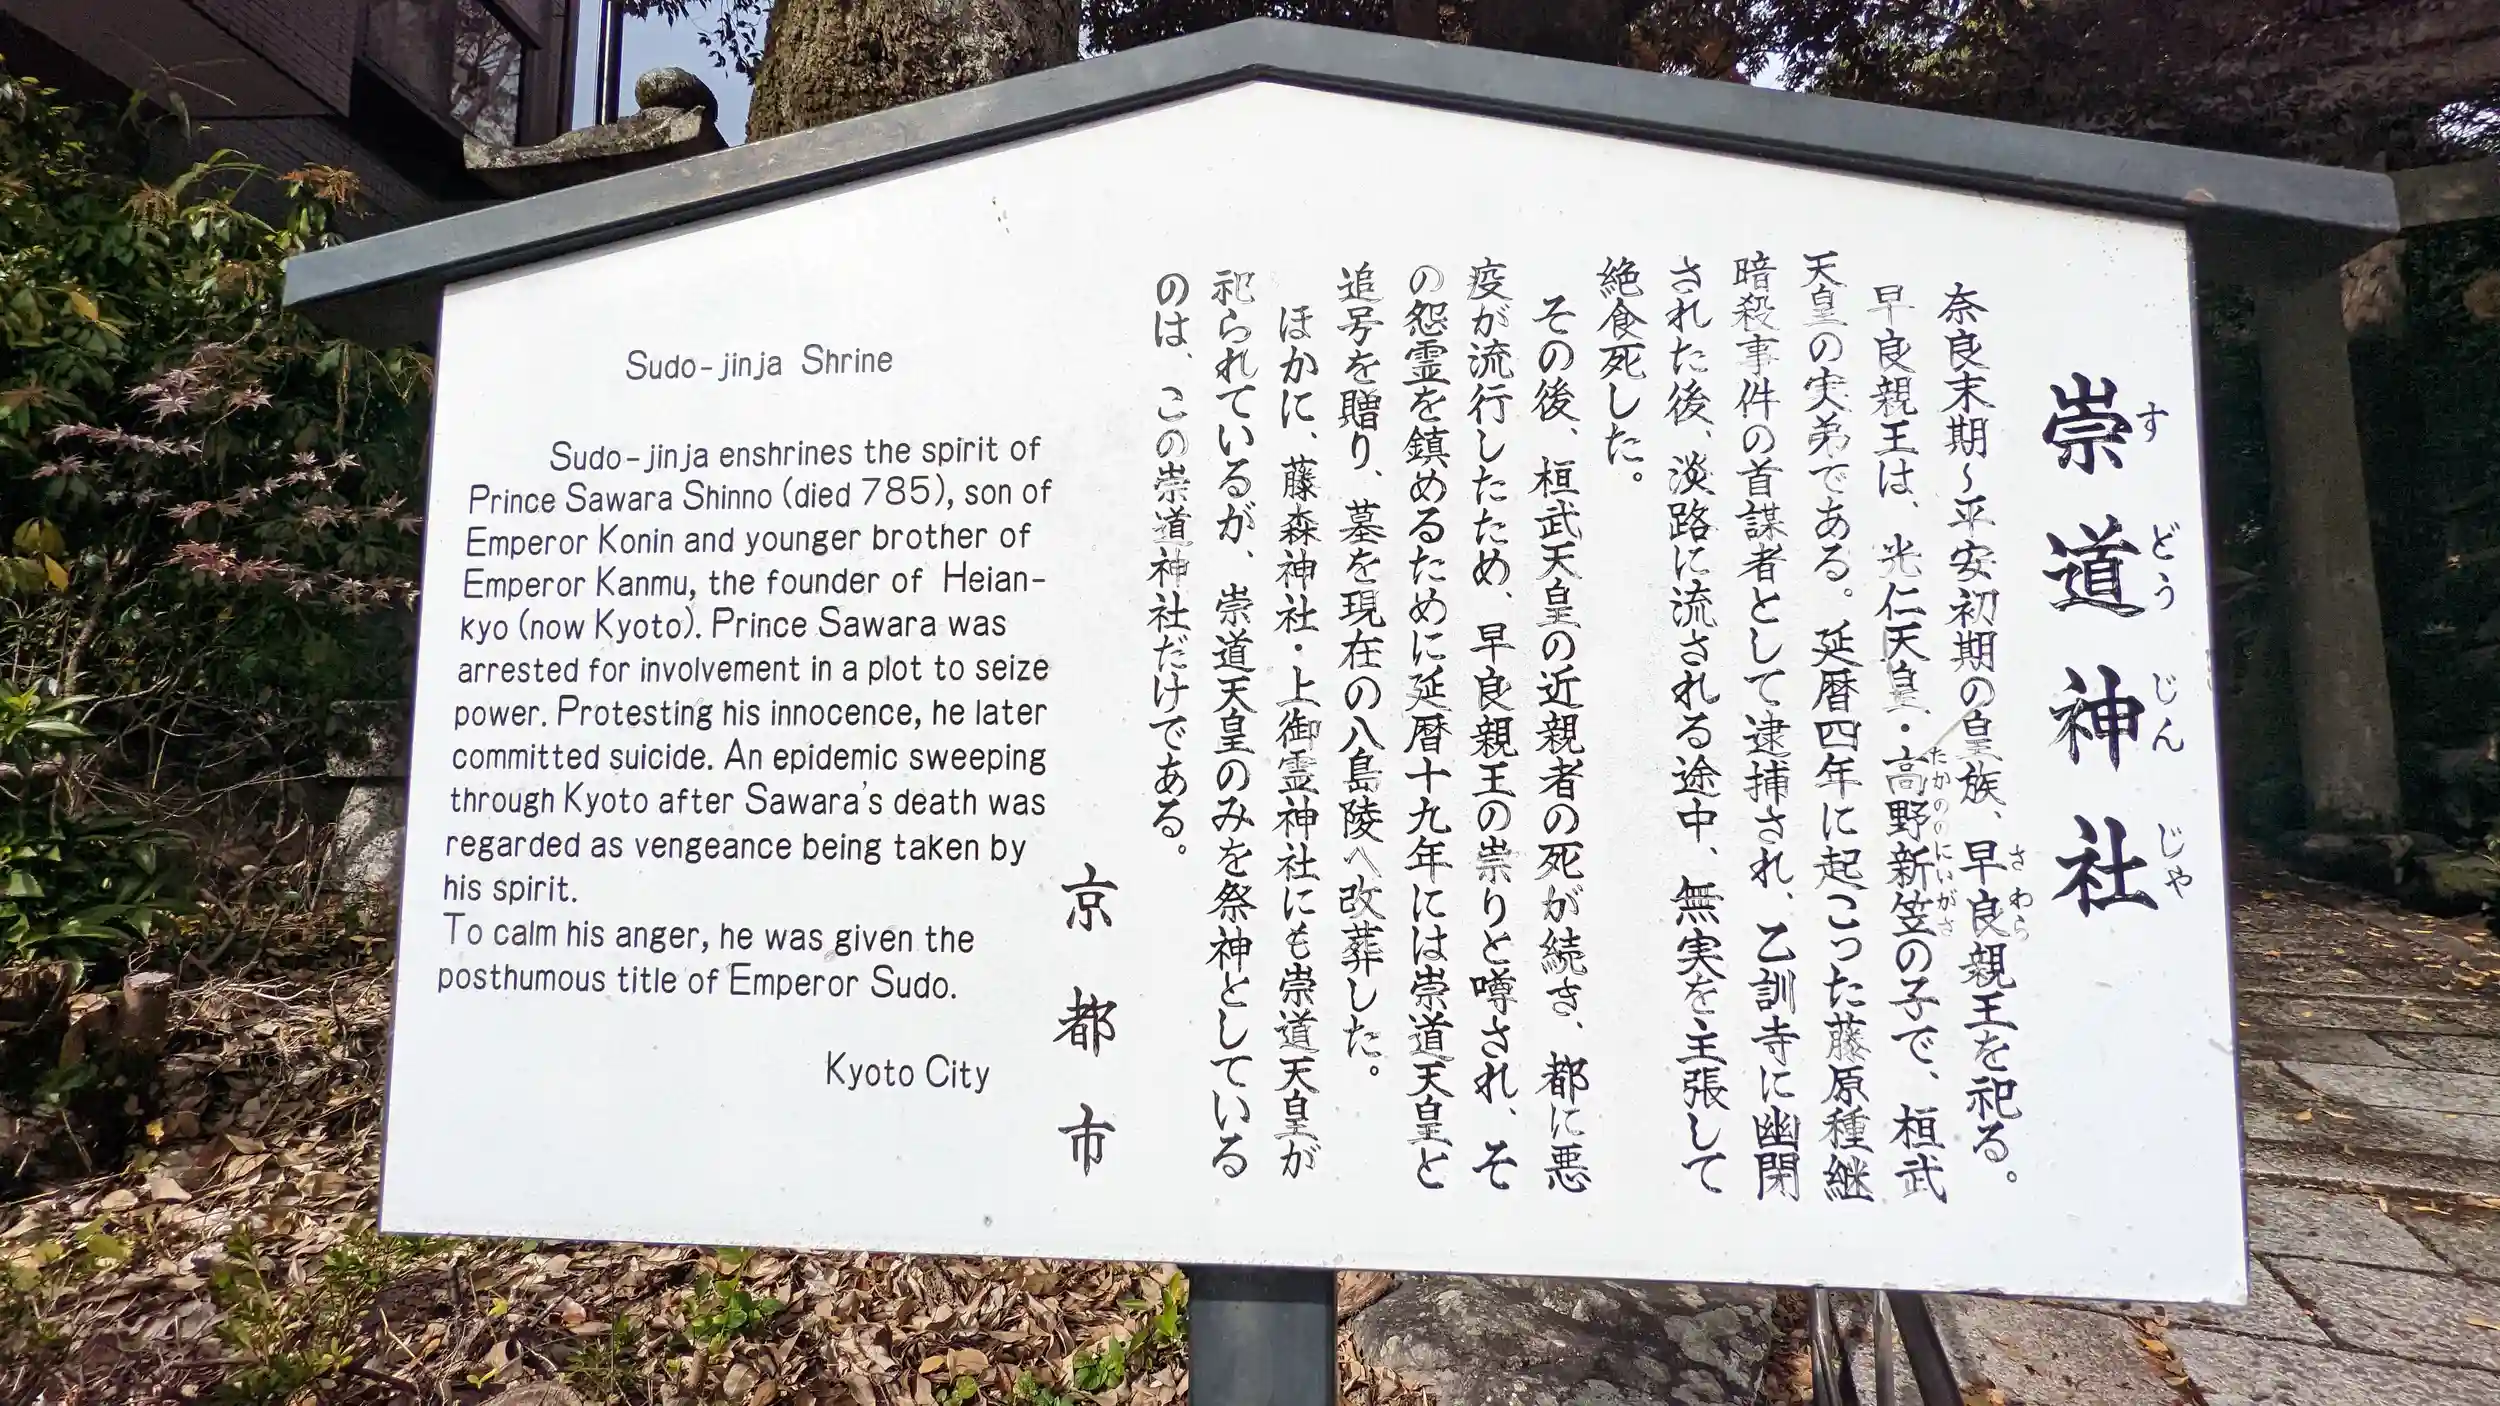 崇道神社
すどうじんじゃ
奈良末期~平安初期の皇族、早良親王を祀る。
さわら
早良親王は、光仁天皇・高野新笠の子で、桓武
たかのの にいがさ
天皇の実弟である。延暦四年に起こった藤原種継
暗殺事件の首謀者として逮捕され、乙訓寺に幽閉
された後、淡路に流される途中、無実を主張して
絶食死した。
その後、桓武天皇の近親者の死が続き、都に悪
疫が流行したため、早良親王の祟りと噂され、そ
の怨霊を鎮めるために延暦十九年には崇道天皇と
追号を贈り、墓を現在の八島陵へ改葬した。
ほかに、藤森神社・上御霊神社にも崇道天皇が
祀られているが、崇道天皇のみを祭神としている
のは、この崇道神社だけである。
京都市
Sudo-jinja Shrine
Sudo-jinja enshrines the spirit of
Prince Sawara Shinno (died 785), son of
Emperor Konin and younger brother of
Emperor Kanmu, the founder of Heian-
kyo (now Kyoto). Prince Sawara was
arrested for involvement in a plot to seize
power. Protesting his innocence, he later
committed suicide. An epidemic sweeping
through Kyoto after Sawara's death was
regarded as vengeance being taken by
his spirit.
To calm his anger, he was given the
posthumous title of Emperor Sudo.
Kyoto City